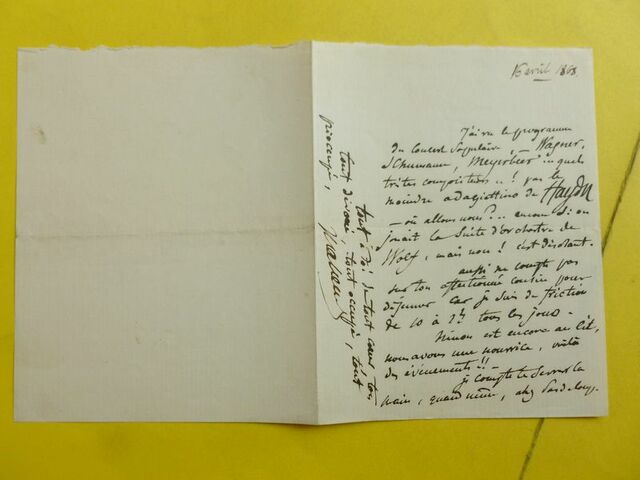 16 avril 1868
J'ai vu le programme
du Concert Populaire Wagner,
Schumann, Meyerbeer... quels
tristes compositeurs..! pas le
moindre adagiettino de Haydn
— où allons nous ?.. encore si on
jouait la Suite d'orchestre de
Wolf, mais non ! c'est désolant.
aussi ne compte pas
sur ton affectionné cousin pour
déjeuner car je suis de friction
de 10 à 2h tous les jours -
Ninon est encore au lit,
nous avons une nourrice, voilà
des évènements !! -
je compte te serrer la
main, quand même, chez Pasdeloup,
tout à toi de tout coeur, ton
tout dévoué, tout occupé, tout